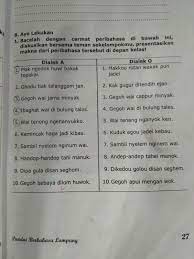 B. Ayo Lakukan
1. Bacalah dengan cermat peribahasa di bawah ini,
diskusikan bersama teman sekelompokmu, presentasikan
makna dari peribahasa tersebut di depan kelas!
Dialek A
Dialek O
1. Mak ngedoh huwi bakak
1. Makkou rutan wakak pun
jadei
2. Ghadu fiak telanggom jan.
2. Kak gugur ditendih egan.
3. Gegoh wai jama minyak.
3. Gegoh wai cappur minyak.
4. Ibghat wai di bulung talos.
4. Ibarat wai di bulung tales.
5. Wai teneng ngehanyukko.
5. Wai teneng ngehanyukken.
6. Kemincak haga jadi kibau.
6. Kuduk agou jadei kebau.
7. Sambil nyelom nginum wai.
7. Sambil nyelem nginem wai.
8. Handop-handop tahi manuk.
8. Andep-andep tahei manuk.
9. Dipa gula disan seghom.
9. Dipou gulou disan serem.
10. Gegoh bebaya dikom huwok.
10. Gegoh apui mengan sek.
Pandai Berbahasa Lampung
27